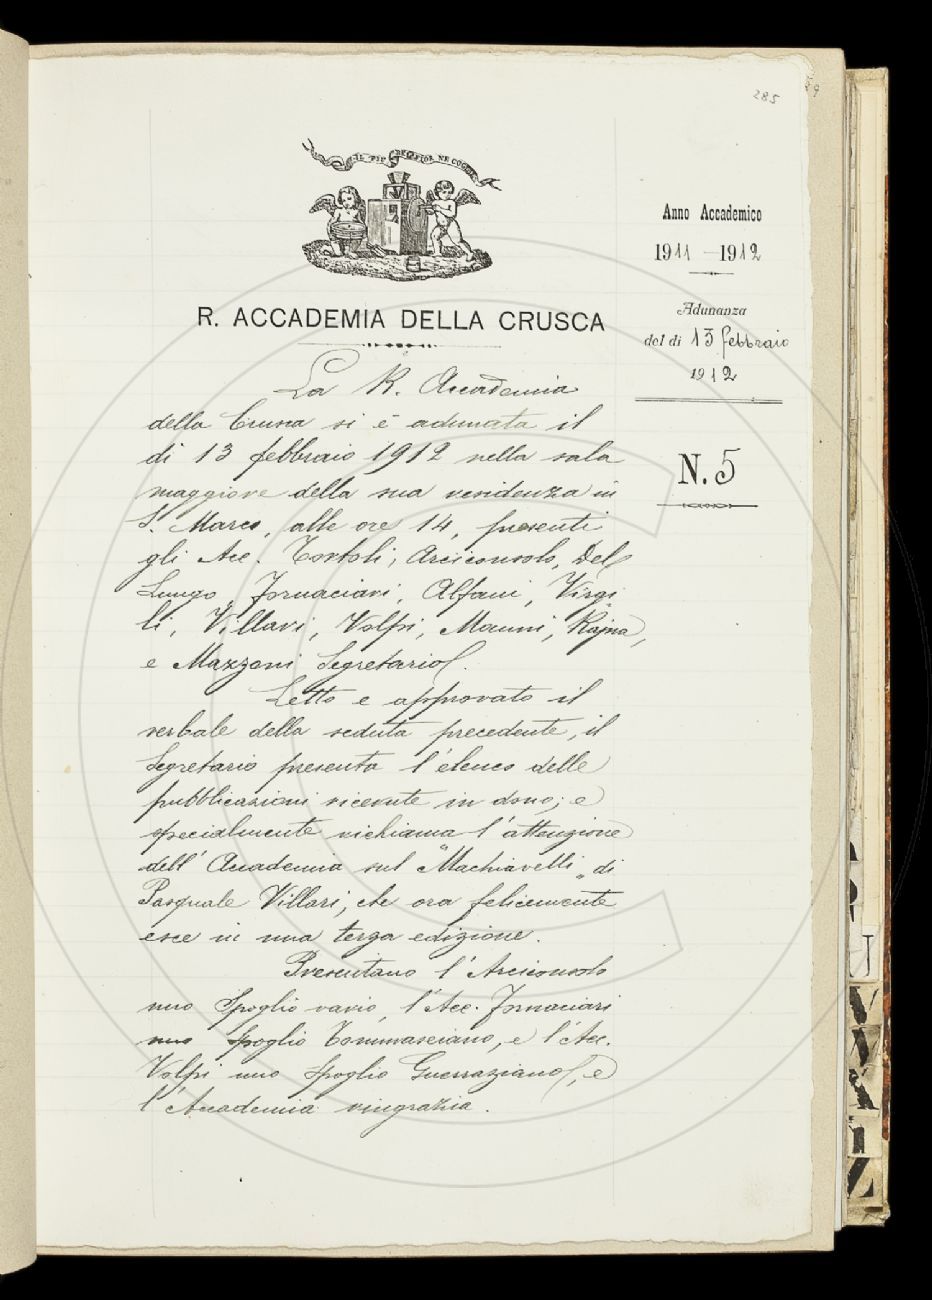 285
IL PIÙ BEL FIOR NE COGLIE
Anno Accademico
1911 - 1912
R. ACCADEMIA DELLA CRUSCA
Adunanza
del dì 13 febbraio
1912
N. 5
La R. Accademia
della Crusca si è adunata il
dì 13 febbraio 1912 nella sala
maggiore della sua residenza in
S. Marco, alle ore 14, presenti
gli Acc. Tortoli, Arciconsolo, Del
Lungo, Fornaciari, Alfani, Virgi
li, Villari, Volpi, Manni, Rajna,
e Mazzoni Segretario.
Letto e approvato il
verbale della seduta precedente, il
Segretario presenta l'elenco delle
pubblicazioni ricevute in dono; e
specialmente richiama l'attenzione
dell'Accademia sul "Machiavelli" di
Pasquale Villari, che ora felicemente
esce in una terza edizione.
Presentano l'Arciconsolo
uno Spoglio vario, l'Acc. Fornaciari
uno Spoglio Tommaseiano, e l'Acc.
Volpi uno Spoglio Guerraziano, e
l'Accademia ringrazia.